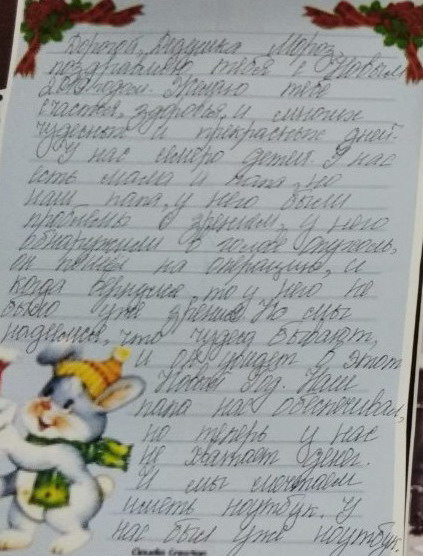 Дорогой Дедушка Мороз,
поздравляю тебя с Новым
годом. Желаю тебе
счастья, здоровья, и многих
чудесных и прекрасных дней.
У нас детей. У нас
есть мама и папа, но
наш папа, у него были
проблемы с зрением, у него
обнаружили в голове опухоль,
он пошёл на операцию, и
когда вернулся то у него не
было уже зрения. Но мы
надеемся, что чудеса бывают,
и он увидет в этот
Новый Год. Наш
папа нас обеспечивал,
но теперь у нас
не хватает денег.
И мы мечтаем
иметь ноутбук. У
нас был уже ноутбук,